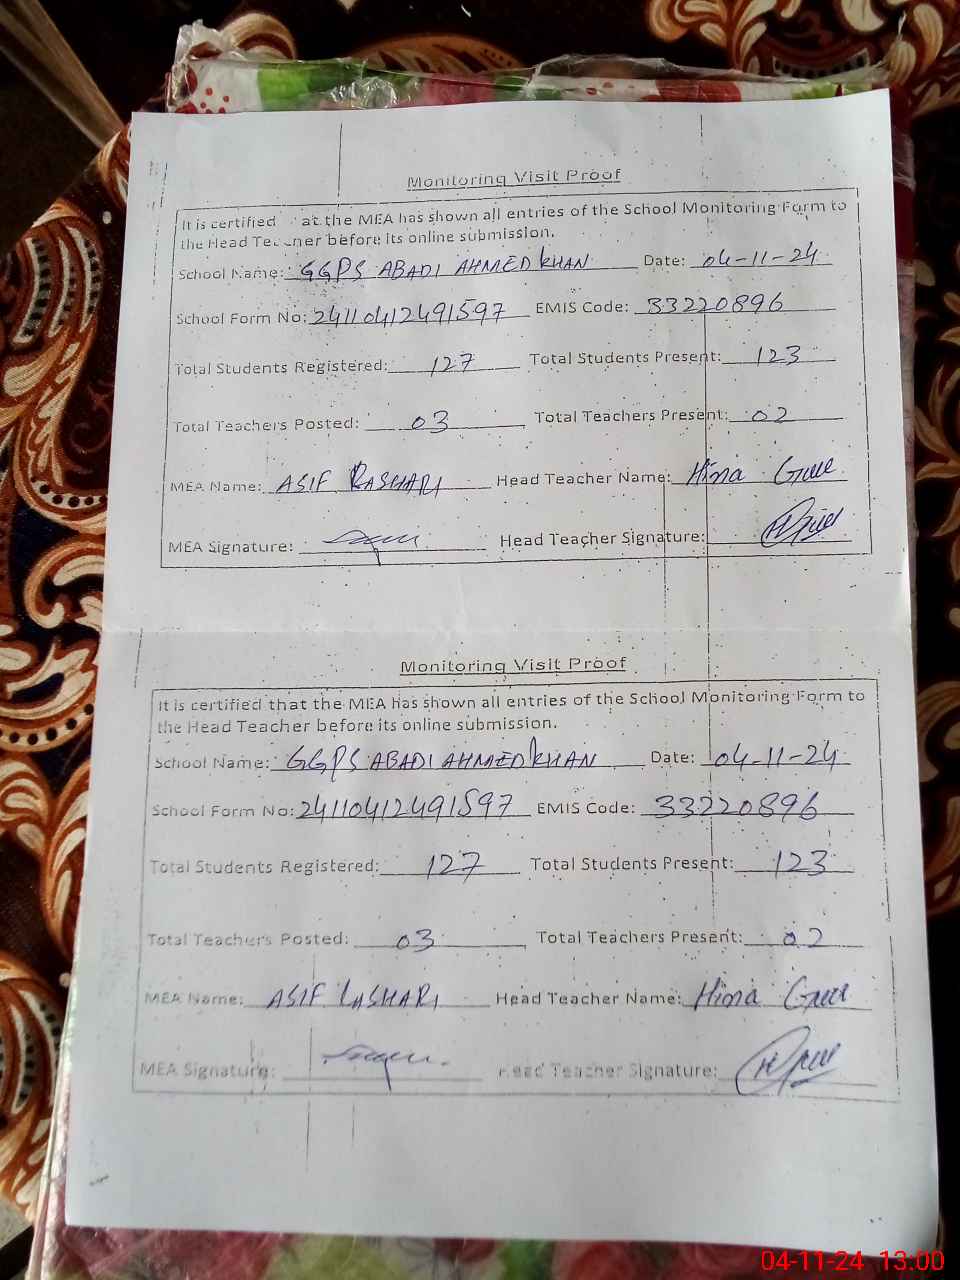 Monitoring Visit Proof
It is certified at the MEA has shown all entries of the School Monitoring Form to
the Head Teacher before its online submission.
School Name: GGPS ABADI AHMED KHAN Date: 04-11-24
School Form No: 24110412491597 EMIS Code: 33220896
Total Students Registered: 127 Total Students Present: 123
Total Teachers Posted: 03 Total Teachers Present: 02
MEA Name: ASIF LASHARI Head Teacher Name: Hina
MEA Signature: Head Teacher Signature:
Monitoring Visit Proof
It is certified that the MEA has shown all entries of the School Monitoring Form to
the Head Teacher before its online submission.
School Name: GGPS ABADI AHMED KHAN Date: 04-11-24
School Form No: 24110412491597 EMIS Code: 33220896
Total Students Registered: 127 Total Students Present: 123
Total Teachers Posted: 03 Total Teachers Present: 02
MEA Name: ASIF LASHARI Head Teacher Name: Hina
MEA Signature: Head Teacher Signature:
04-11-24 13:00